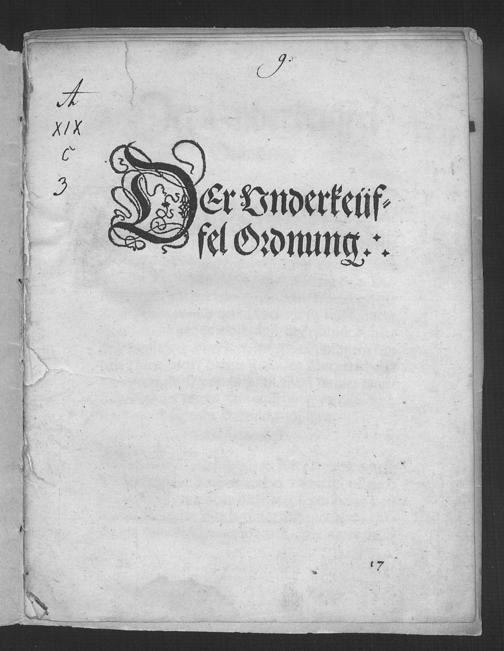 9.
A
XIX
C
3
DEr Vnderkeüf-
fel Ordnung.
17